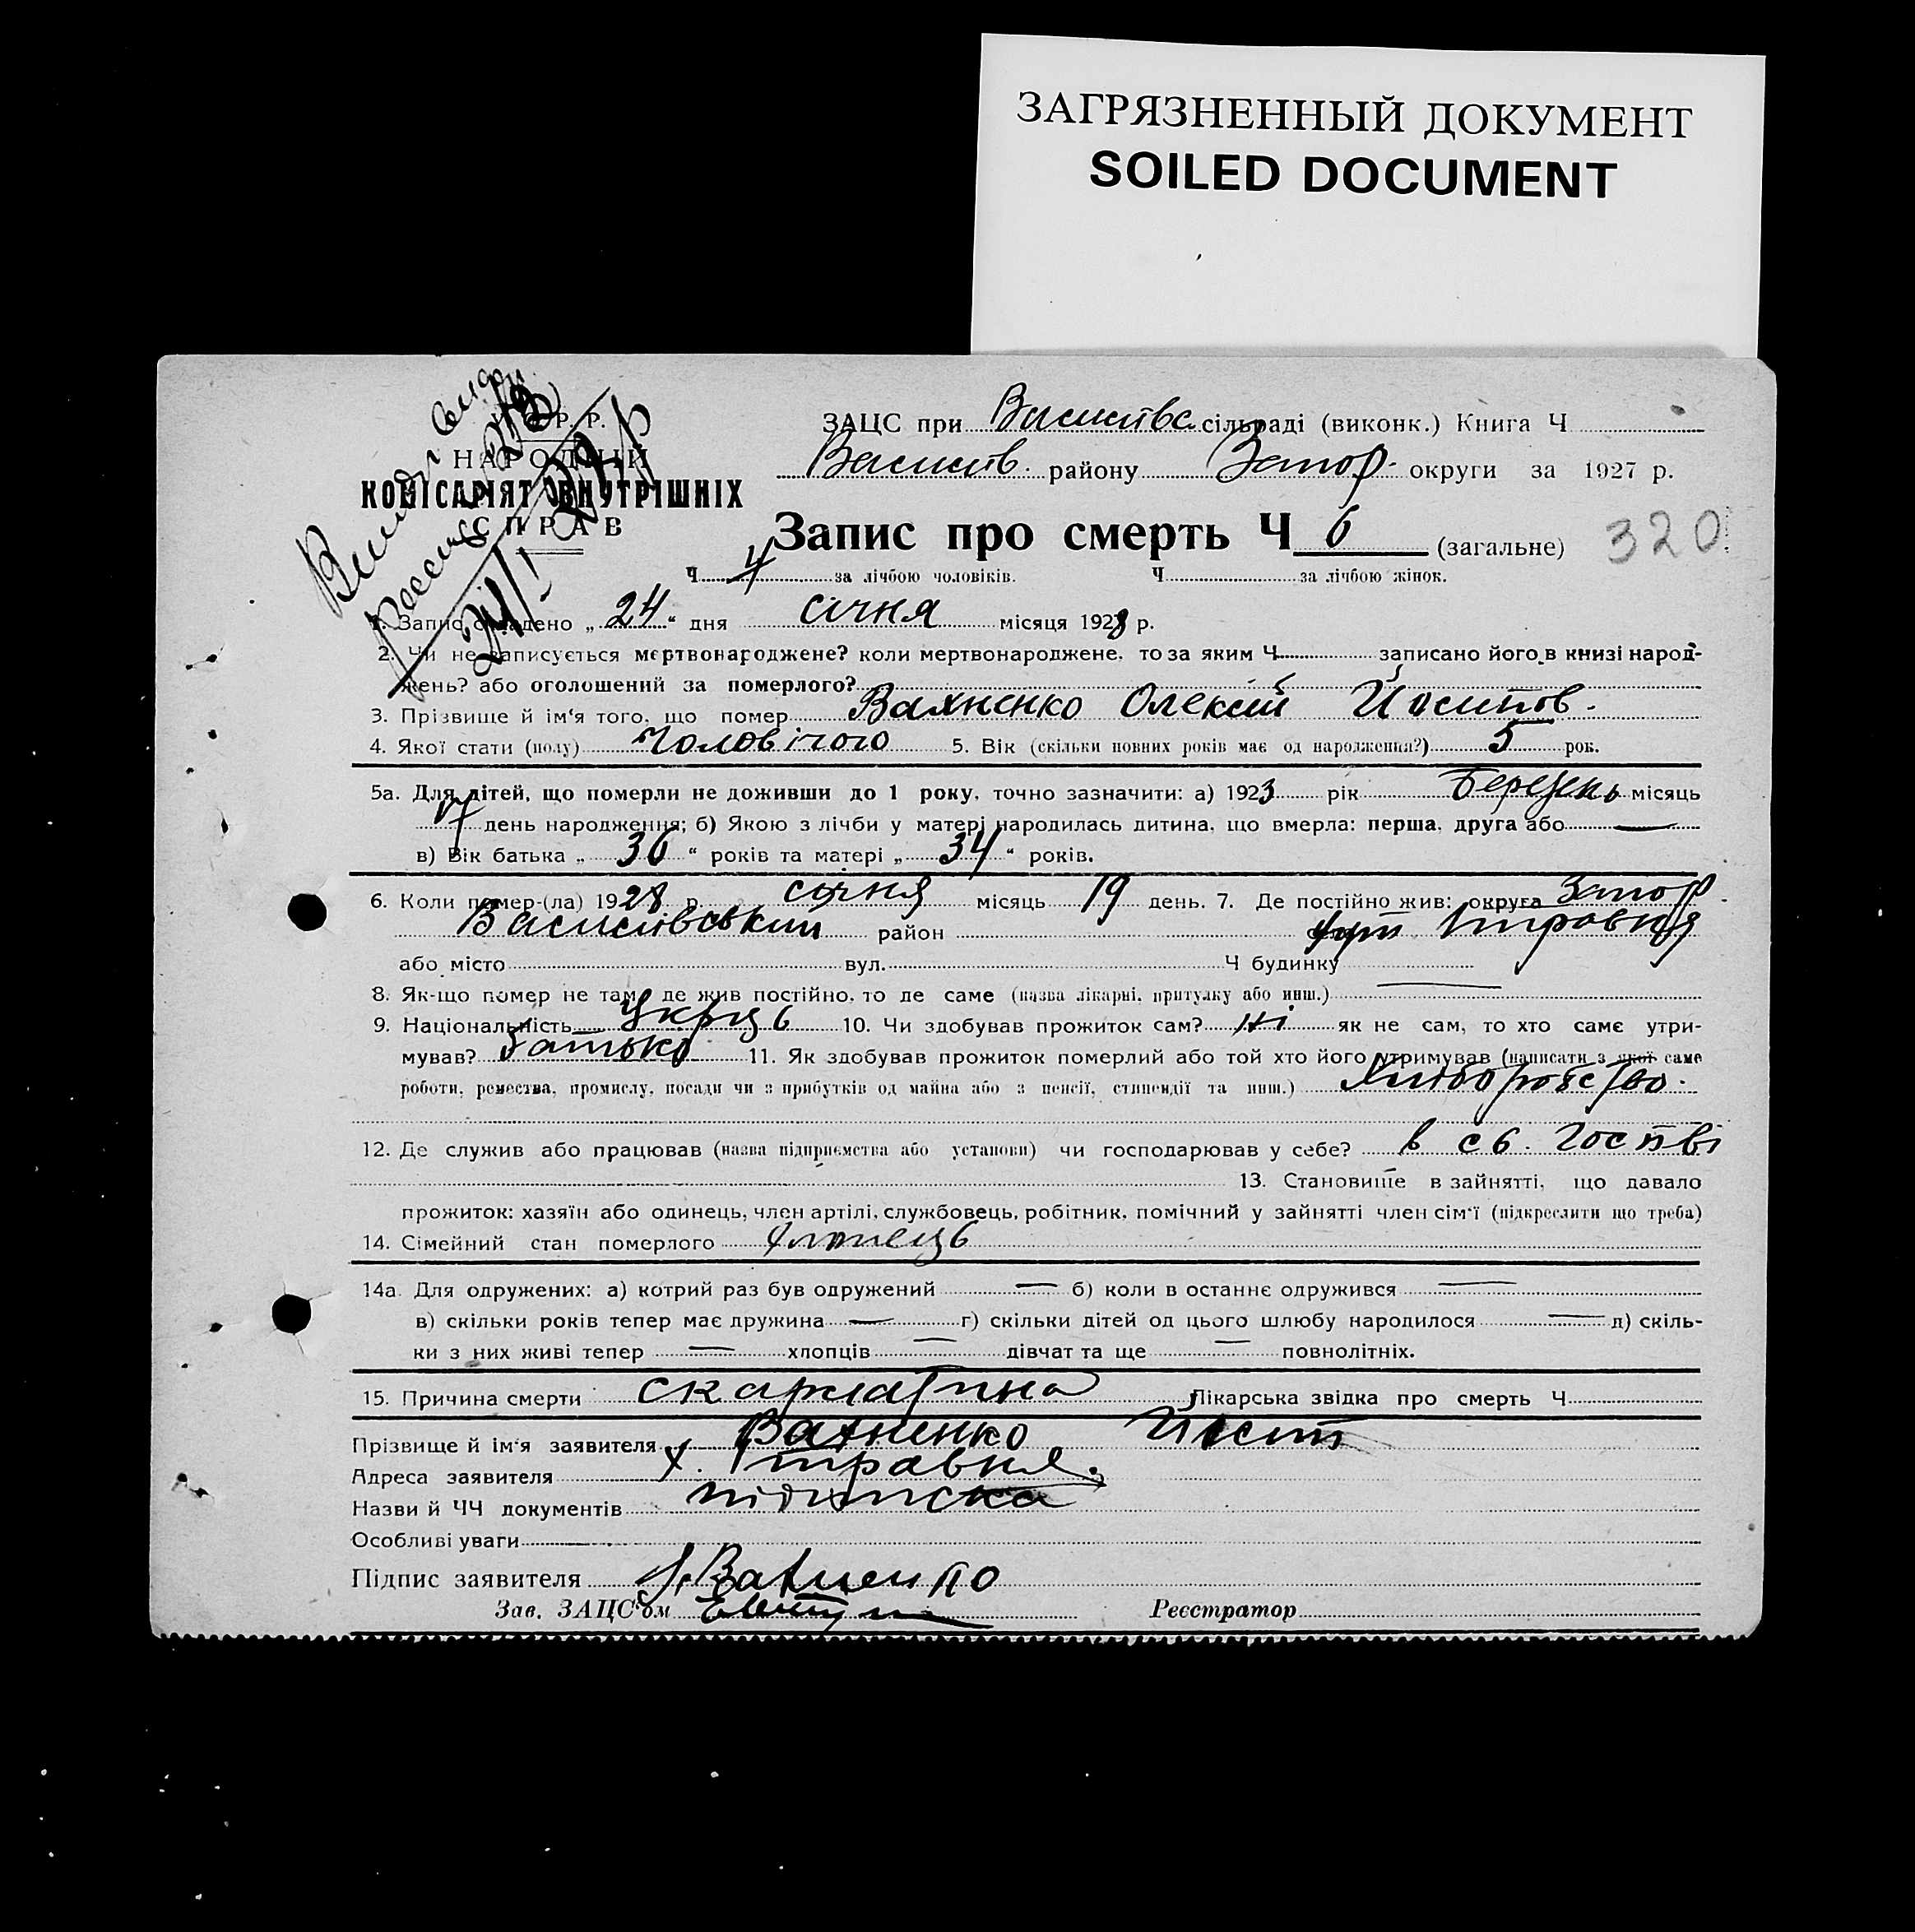 ЗАГРЯЗНЕННЫЙ ДОКУМЕНТ
SOILED DOCUMENT
У.С.Р.Р.
НАРОДНІЙ
КОМІСАРІЯТ ВНУТРІШНІХ
СПРАВ
ЗАЦС при сільраді (виконк.) Книга Ч
Василів. району Запор. округи за 1927 р.
Запис про смерть Ч 6 (загальне) 320
Ч 4 за лічбою чоловіків. Ч за лічбою жінок.
1. Запис складено „ 24 " дня січня місяця 1928 р.
2. Чи не записується мертвонароджене? коли мертвонароджене, то за яким Ч записано його в книзі народ-
жень? або оголошений за померлого?
3. Прізвище й ім'я того, що помер Вахненко Олексій Йосипов.
4. Якої стати (полу) Чоловічого 5. Вік (скільки повних років має од народження?) 5 рок.
5а. Для дітей, що померли не доживши до 1 року, точно зазначити: а) 1923 рік Березень місяць
17 день народження; б) Якою з лічби у матері народилась дитина, що вмерла: перша, друга або —
в) Вік батька „ 36 " років та матері „ 34 " років.
6. Коли помер-(ла) 1928 р. січня місяць 19 день. 7. Де постійно жив: округа Запор
Василівський район
або місто вул. Ч будинку
8. Як-що помер не там, де жив постійно, то де саме (назва лікарні, притулку або инш.) —
9. Національність Украць 10. Чи здобував прожиток сам? Ні як не сам, то хто саме утри-
мував? Батько 11. Як здобував прожиток померлий або той хто його утримував (написати з якої саме
роботи, ремества, промислу, посади чи з прибутків од майна або з пенсії, стипендії та инш.) Хліборобство.
12. Де служив або працював (назва підприємства або установи) чи господарював у себе? в св. Гоствi
13. Становище в зайнятті, що давало
прожиток: хазяїн або одинець, член артілі, службовець, робітник, помічний у зайнятті член сім'ї (підкреслити що треба)
14. Сімейний стан померлого Хлопець
14а. Для одружених: а) котрий раз був одружений — б) коли в останнє одружився —
в) скільки років тепер має дружина — г) скільки дітей од цього шлюбу народилося — д) скіль-
ки з них живі тепер — хлопців — дівчат та ще — повнолітніх.
15. Причина смерти скарлатина Лікарська звідка про смерть Ч
Прізвище й ім'я заявителя Вахненко Йосип
Адреса заявителя х.
Назви й ЧЧ документів підписка
Особливі уваги —
Підпис заявителя Вахненко
Зав. ЗАЦС'ом Реєстратор